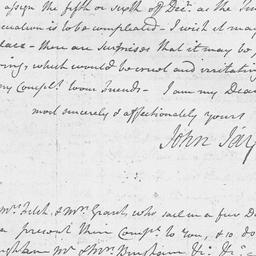 assign the fifth or sixth of Decr. as the
is to be compleated – I wish it may
– there are surmises that it may be
which would be cruel and irritating
my Complts. to our friends – I am my Dear
most sincerely & affectionately yours
John Jay
Mr. Fitch, & Mr. Grant, who sail in a few
a present their Compts. to You, & so do
Mr. & Mrs. Bingham &c. &c.